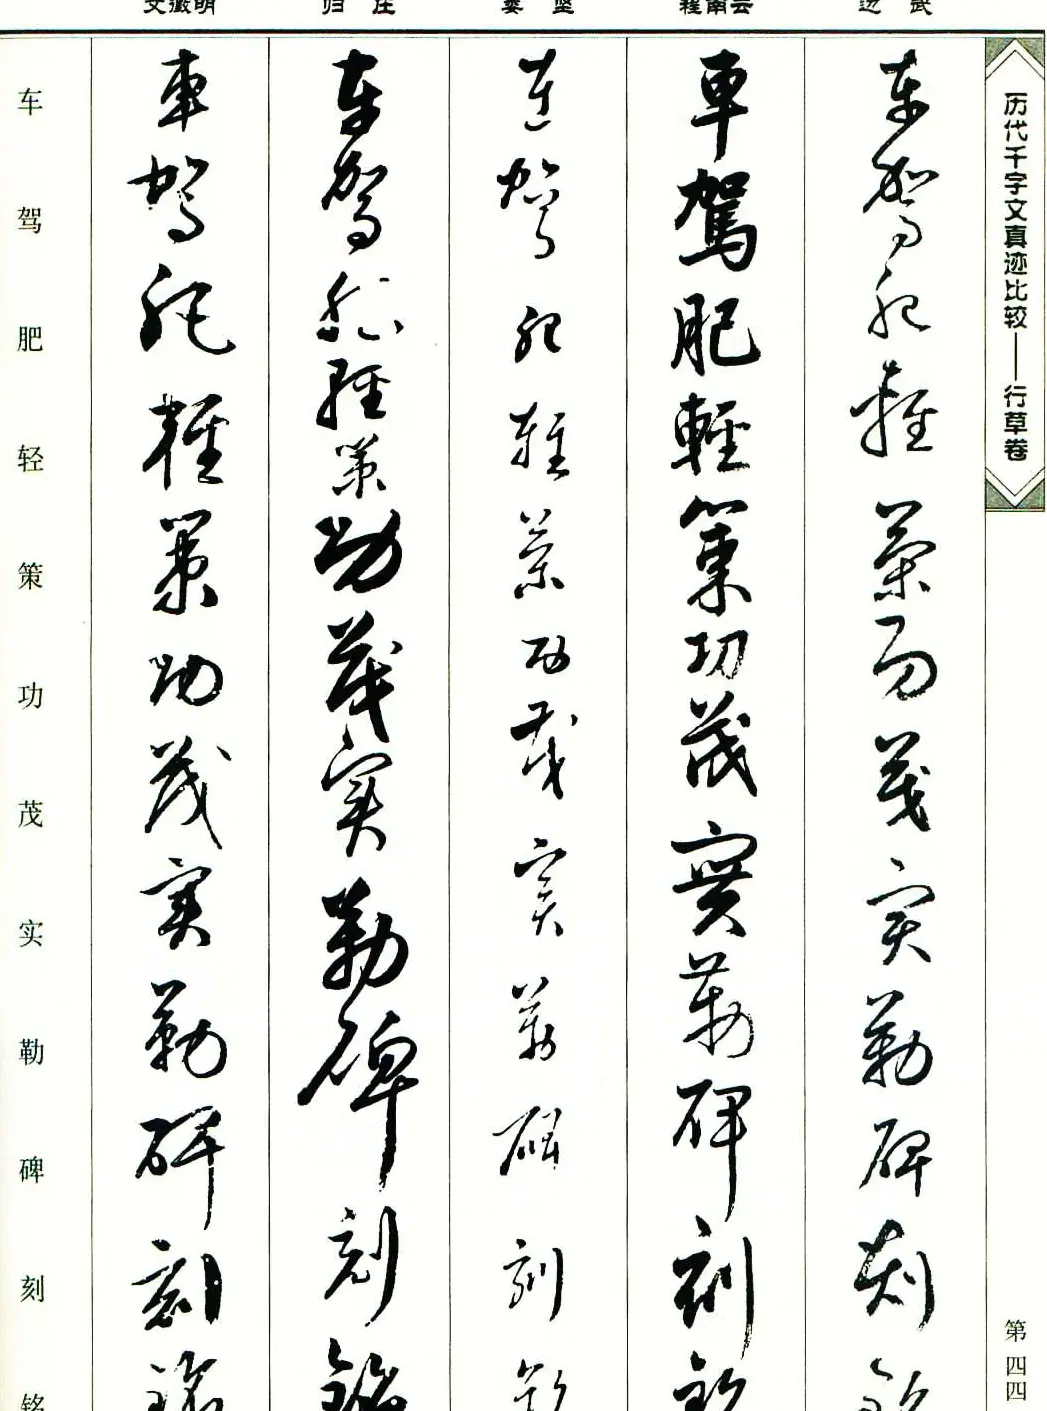 历代千字文真迹比较——行草卷
第四四
车驾肥轻策功茂实勒碑刻铭
車駕肥輕策功茂實勒碑刻
車駕肥輕策功茂實勒碑刻
車駕肥輕策功茂實勒碑刻
車駕肥輕策功茂實勒碑刻銘
車駕肥輕策功茂實勒碑刻